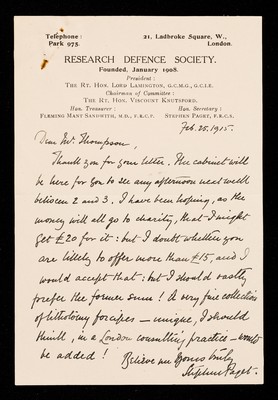 Telephone: 21, Ladbroke Square, W.,
Park 975. London.
RESEARCH DEFENCE SOCIETY.
Founded, January 1908.
President:
THE RT. HON. LORD LAMINGTON, G.C.M.G., G.C.I.E.
Chairman of Committee:
THE RT. HON. VISCOUNT KNUTSFORD.
Hon. Treasurer: Hon. Secretary:
FLEMING MANT SANDWITH, M.D., F.R.C.P. STEPHEN PAGET, F.R.C.S.
Feb. 20. 1915.
Dear Mr. Thompson,
Thank you for your letter. The cabinet will
be here for you to see any afternoon next week
between 2 and 3. I have been hoping, as the
money will all go to charity, that I might
get £20 for it: but I doubt whether you
are likely to offer more than £15, and I
would accept that: but I should vastly
prefer the former sum! A very fine collection
of lithotomy forceps — unique, I should
think, in a London consulting practice — would
be added! Believe me yours truly
Stephen Paget.